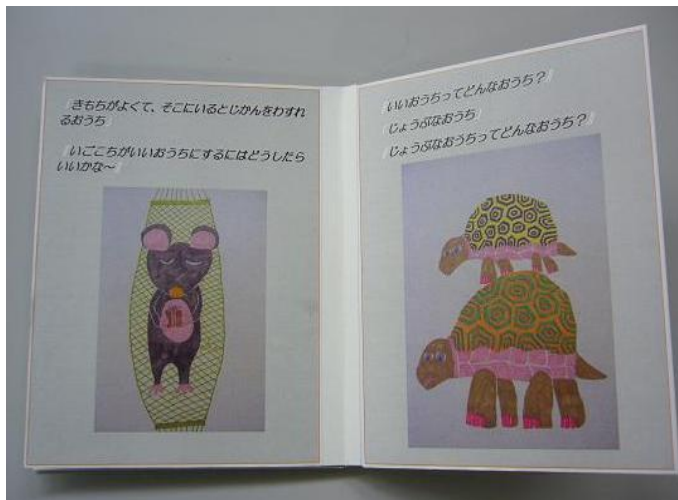 『きもちがよくて、そこにいるとじかんをわすれ
るおうち』
『いごこちがいいおうちにするにはどうしたら
いいかな～』
『いいおうちってどんなおうち？』
『じょうぶなおうち』
『じょうぶなおうちってどんなおうち？』